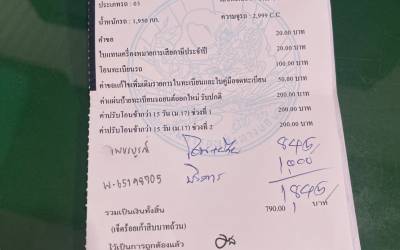 ประเภทรถ : 03
น้ำหนักรถ : 1,950 กก. ความจุรถ : 2,999 C.C
ค่าขอ 20.00 บาท
ใบแทนเครื่องหมายการเสียภาษีประจำปี 20.00 บาท
โอนทะเบียนรถ 100.00 บาท
ค่าขอแก้ไขเพิ่มเติมรายการในทะเบียนและใบคู่มือจดทะเบียน 50.00 บาท
ค่าแผ่นป้ายทะเบียนรถยนต์ออกใหม่ รับปกติ 200.00 บาท
ค่าปรับโอนช้ากว่า 15 วัน (ม.17) ช่วงที่ 1 200.00 บาท
ค่าปรับโอนช้ากว่า 15 วัน (ม.17) ช่วงที่ 2 200.00 บาท
เพชรบูรณ์ 845
1,000
1845
รวมเป็นเงินทั้งสิ้น 790.00 บาท
(เจ็ดร้อยเก้าสิบบาทถ้วน)
ไว้เป็นการถูกต้องแล้ว